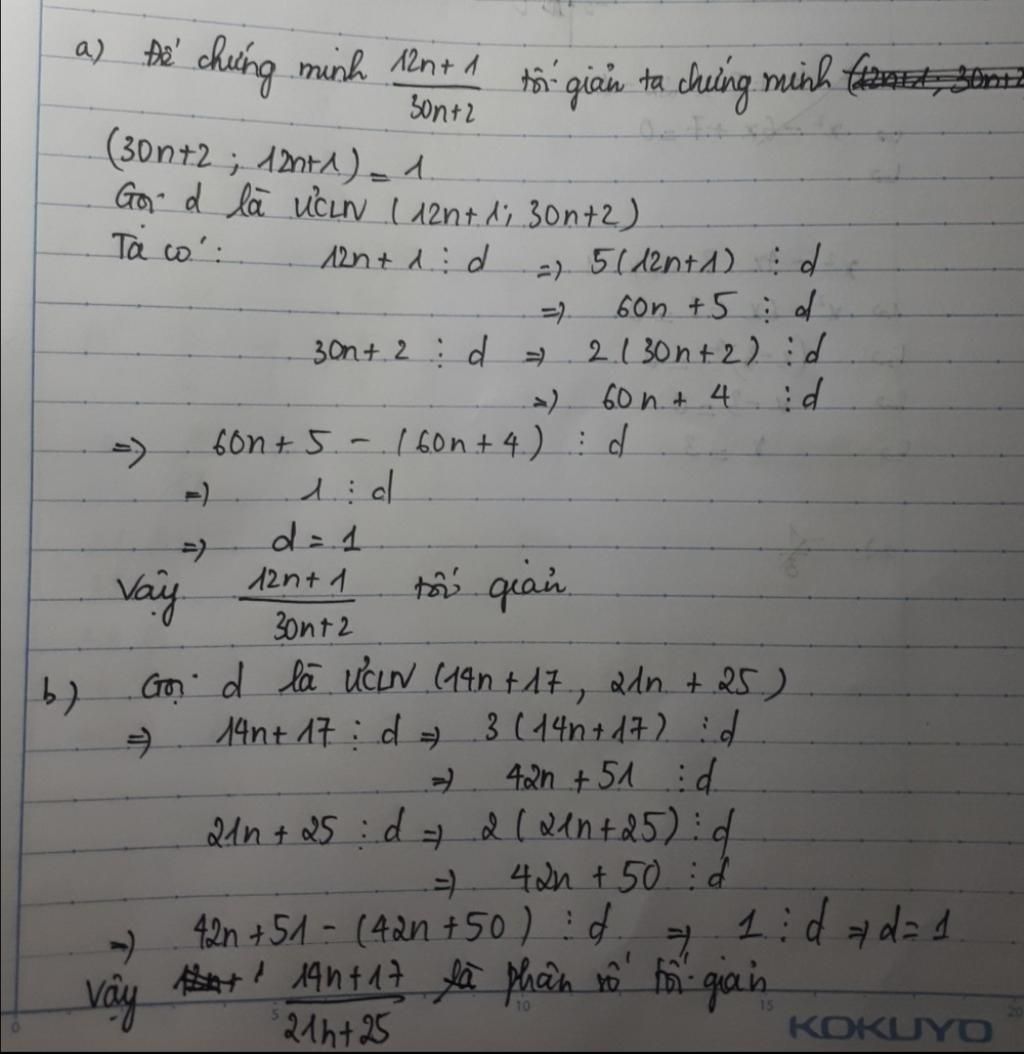 a) Để chứng minh \frac{12n+1}{30n+2} tối giản ta chứng minh (12n+1; 30n+2
(30n+2 ; 12n+1) = 1
Gọi d là ƯCLN (12n+1; 30n+2)
Ta có: 12n+1 ⋮ d => 5(12n+1) ⋮ d
=> 60n + 5 ⋮ d
30n+2 ⋮ d => 2(30n+2) ⋮ d
=> 60n + 4 ⋮ d
=> 60n+5 - (60n+4) ⋮ d
=> 1 ⋮ d
=> d = 1
Vậy \frac{12n+1}{30n+2} tối giản
b) Gọi d là ƯCLN (14n+17, 21n + 25)
=> 14n+17 ⋮ d => 3(14n+17) ⋮ d
=> 42n + 51 ⋮ d
21n + 25 ⋮ d => 2(21n+25) ⋮ d
=> 42n + 50 ⋮ d
=> 42n+51-(42n+50) ⋮ d => 1 ⋮ d => d=1
Vậy 12n+1 \frac{14n+17}{21n+25} là phân số tối giản
0 5 10 15 20
KOKUYO